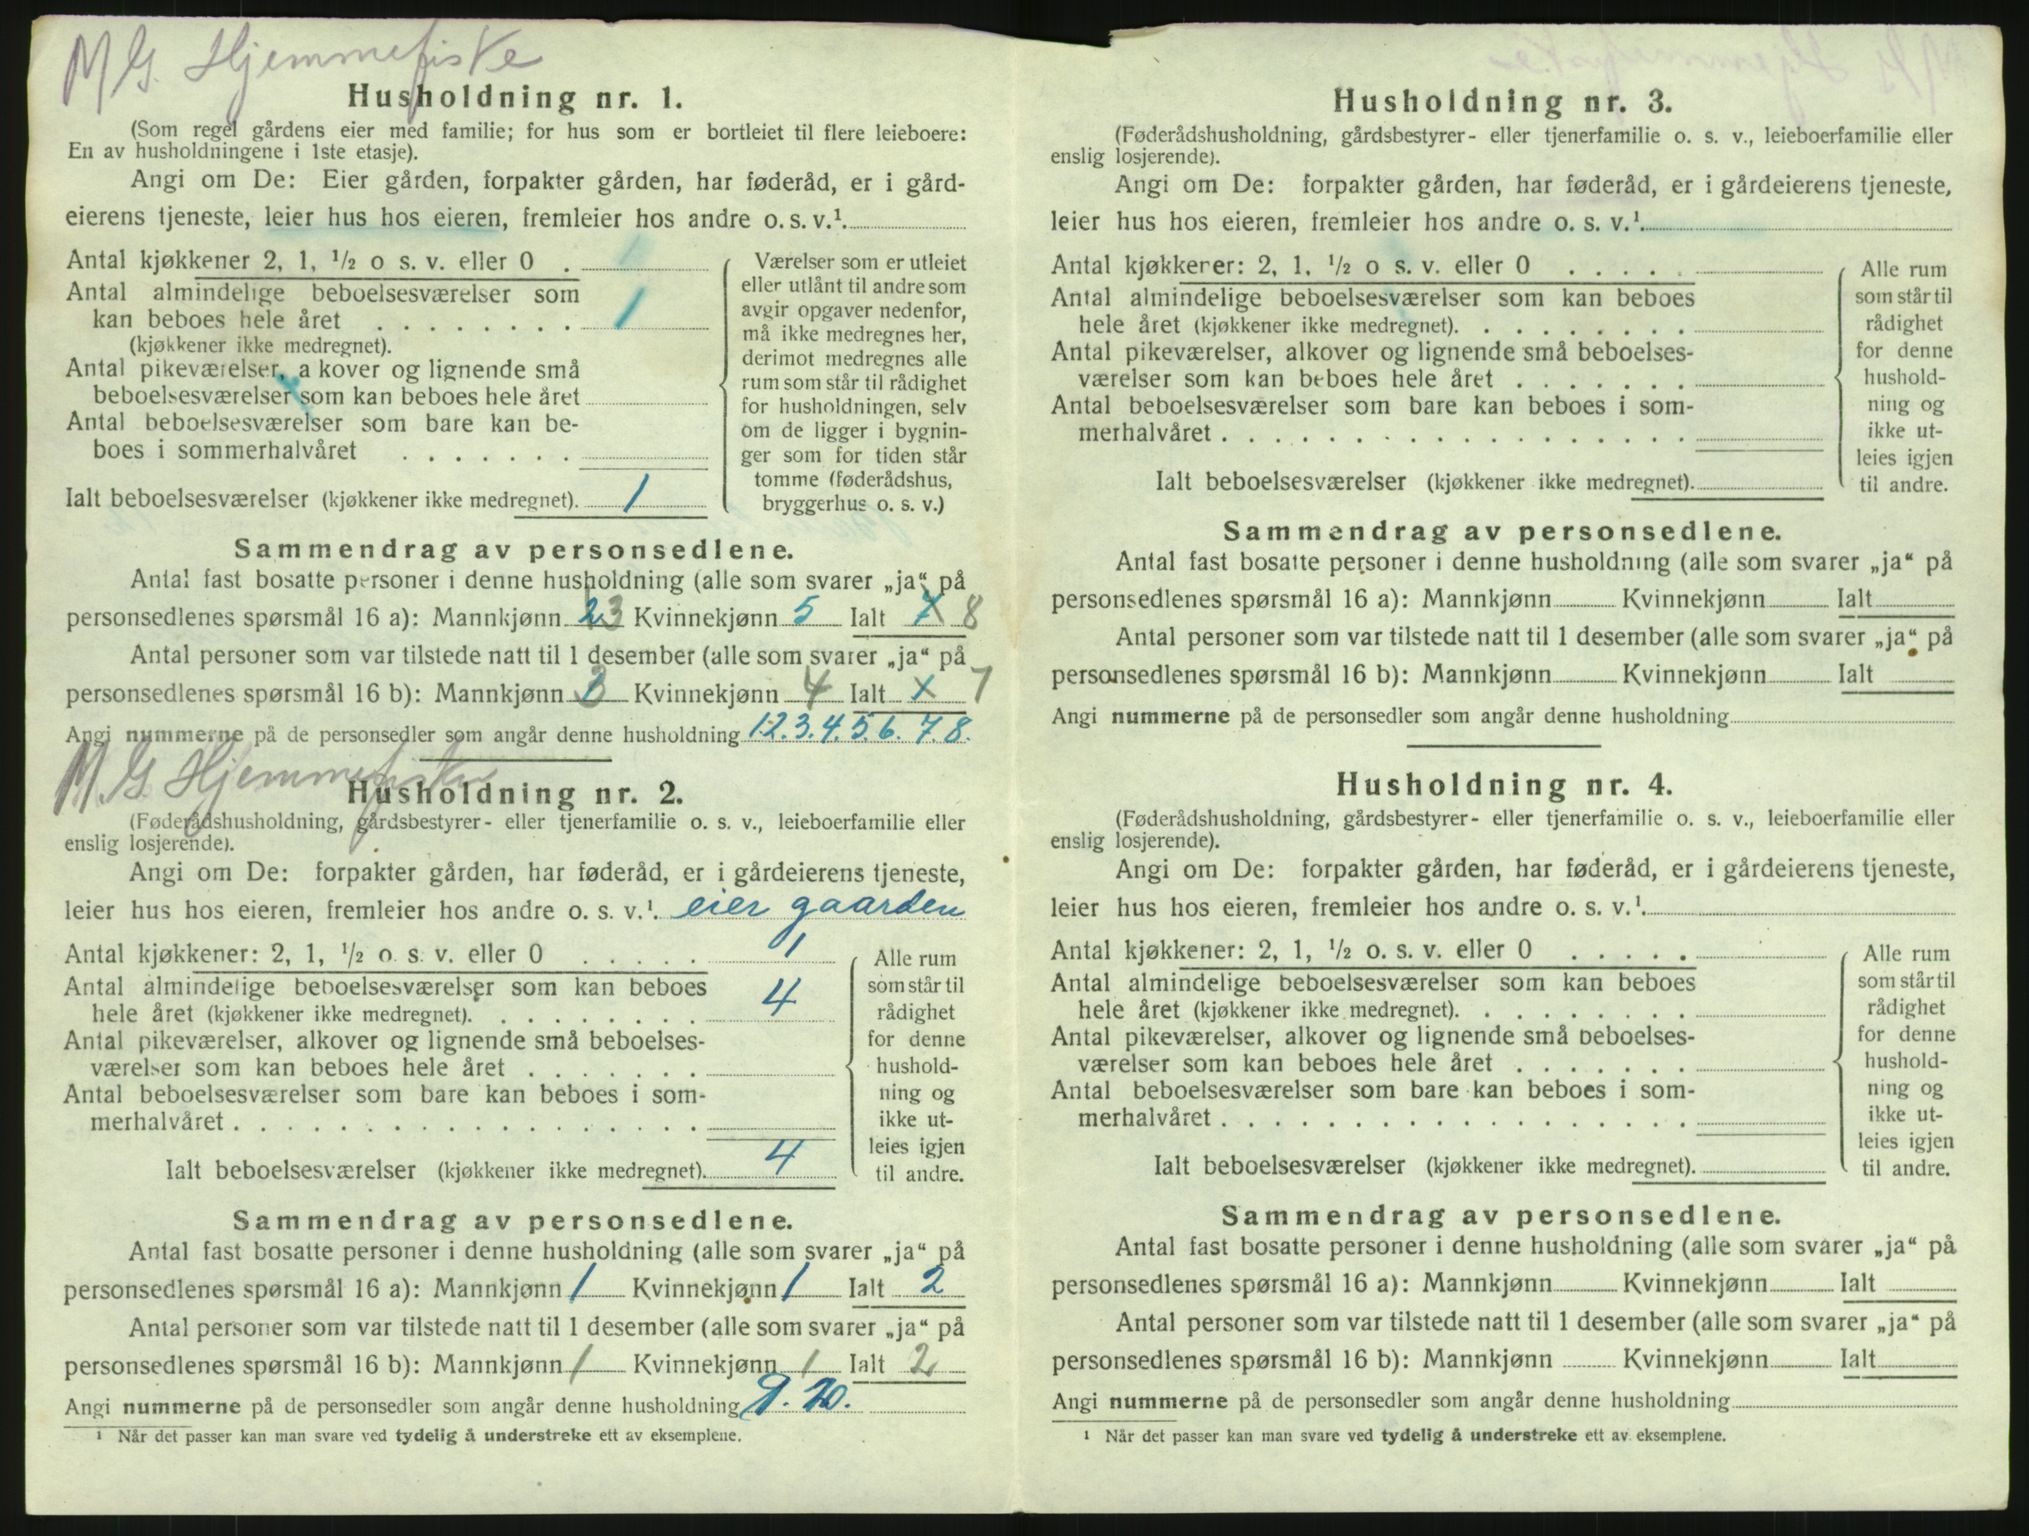 M G. Hjemmefiske
Husholdning nr. 1.
(Som regel gårdens eier med familie; for hus som er bortleiet til flere leieboere:
En av husholdningene i 1ste etasje).
Angi om De: Eier gården, forpakter gården, har føderåd, er i gård-
eierens tjeneste, leier hus hos eieren, fremleier hos andre o. s. v.¹.
Antal kjøkkener 2, 1, ½ o s. v. eller 0 .
Antal almindelige beboelsesværelser som
kan beboes hele året . . . . . . . . 1
(kjøkkener ikke medregnet).
Antal pikeværelser, a kover og lignende små
beboelsesværelser som kan beboes hele året
Antal beboelsesværelser som bare kan be-
boes i sommerhalvåret . . . . . . .
Ialt beboelsesværelser (kjøkkener ikke medregnet). 1
Værelser som er utleiet
eller utlånt til andre som
avgir opgaver nedenfor,
må ikke medregnes her,
derimot medregnes alle
rum som står til rådighet
for husholdningen, selv
om de ligger i bygnin-
ger som for tiden står
tomme (føderådshus,
bryggerhus o. s. v.)
Sammendrag av personsedlene.
Antal fast bosatte personer i denne husholdning (alle som svarer „ja“ på
personsedlenes spørsmål 16 a): Mannkjønn 2 3 Kvinnekjønn 5 Ialt 7 8
Antal personer som var tilstede natt til 1 desember (alle som svarer „ja“ på
personsedlenes spørsmål 16 b): Mannkjønn 3 Kvinnekjønn 4 Ialt 7
Angi nummerne på de personsedler som angår denne husholdning 1.2.3.4.5.6.7.8.
M. G. Hjemmefiske
Husholdning nr. 2.
(Føderådshusholdning, gårdsbestyrer- eller tjenerfamilie o. s. v., leieboerfamilie eller
enslig losjerende).
Angi om De: forpakter gården, har føderåd, er i gårdeierens tjeneste,
leier hus hos eieren, fremleier hos andre o. s. v.¹. eier gaarden
Antal kjøkkener: 2, 1, ½ o. s. v. eller 0 . . . . . 1
Antal almindelige beboelsesværelser som kan beboes
hele året (kjøkkener ikke medregnet). . . . . . . . . 4
Antal pikeværelser, alkover og lignende små beboelses-
værelser som kan beboes hele året . . . . . . .
Antal beboelsesværelser som bare kan beboes i som-
merhalvåret . . . . . . . . . . . . . . . . . .
Ialt beboelsesværelser (kjøkkener ikke medregnet). 4
Alle rum
som står til
rådighet
for denne
hushold-
ning og
ikke ut-
leies igjen
til andre.
Sammendrag av personsedlene.
Antal fast bosatte personer i denne husholdning (alle som svarer „ja“ på
personsedlenes spørsmål 16 a): Mannkjønn 1 Kvinnekjønn 1 Ialt 2
Antal personer som var tilstede natt til 1 desember (alle som svarer „ja“ på
personsedlenes spørsmål 16 b): Mannkjønn 1 Kvinnekjønn 1 Ialt 2
Angi nummerne på de personsedler som angår denne husholdning 9. 10.
¹ Når det passer kan man svare ved tydelig å understreke ett av eksemplene.
Husholdning nr. 3.
(Føderådshusholdning, gårdsbestyrer- eller tjenerfamilie o. s. v., leieboerfamilie eller
enslig losjerende).
Angi om De: forpakter gården, har føderåd, er i gårdeierens tjeneste,
leier hus hos eieren, fremleier hos andre o. s. v.¹.
Antal kjøkkener: 2, 1, ½ o s. v. eller 0 . . . . .
Antal almindelige beboelsesværelser som kan beboes
hele året (kjøkkener ikke medregnet). . . . . . . . .
Antal pikeværelser, alkover og lignende små beboelses-
værelser som kan beboes hele året . . . . . . .
Antal beboelsesværelser som bare kan beboes i som-
merhalvåret . . . . . . . . . . . . . . . . . .
Ialt beboelsesværelser (kjøkkener ikke medregnet).
Alle rum
som står til
rådighet
for denne
hushold-
ning og
ikke ut-
leies igjen
til andre.
Sammendrag av personsedlene.
Antal fast bosatte personer i denne husholdning (alle som svarer „ja“ på
personsedlenes spørsmål 16 a): Mannkjønn Kvinnekjønn Ialt
Antal personer som var tilstede natt til 1 desember (alle som svarer „ja“ på
personsedlenes spørsmål 16 b): Mannkjønn Kvinnekjønn Ialt
Angi nummerne på de personsedler som angår denne husholdning
Husholdning nr. 4.
(Føderådshusholdning, gårdsbestyrer- eller tjenerfamilie o. s. v., leieboerfamilie eller
enslig losjerende).
Angi om De: forpakter gården, har føderåd, er i gårdeierens tjeneste,
leier hus hos eieren, fremleier hos andre o. s. v.¹.
Antal kjøkkener: 2, 1, ½ o. s. v. eller 0 . . . . .
Antal almindelige beboelsesværelser som kan beboes
hele året (kjøkkener ikke medregnet). . . . . . . . .
Antal pikeværelser, alkover og lignende små beboelses-
værelser som kan beboes hele året . . . . . . .
Antal beboelsesværelser som bare kan beboes i som-
merhalvåret . . . . . . . . . . . . . . . . . .
Ialt beboelsesværelser (kjøkkener ikke medregnet).
Alle rum
som står til
rådighet
for denne
hushold-
ning og
ikke ut-
leies igjen
til andre.
Sammendrag av personsedlene.
Antal fast bosatte personer i denne husholdning (alle som svarer „ja“ på
personsedlenes spørsmål 16 a): Mannkjønn Kvinnekjønn Ialt
Antal personer som var tilstede natt til 1 desember (alle som svarer „ja“ på
personsedlenes spørsmål 16 b): Mannkjønn Kvinnekjønn Ialt
Angi nummerne på de personsedler som angår denne husholdning
¹ Når det passer kan man svare ved tydelig å understreke ett av eksemplene.